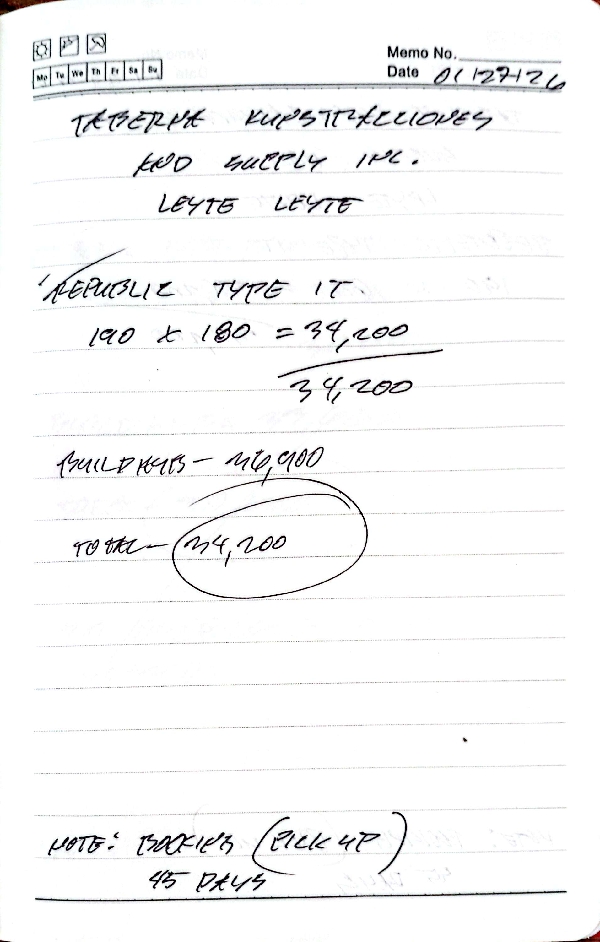 Mo Tu We Th Fr Sa Su
Memo No.
Date 01/27/26
TABERNA KUNSTRACCIONES
AND SUPPLY INC.
LEYTE LEYTE
REPUBLIC TYPE 1T
190 x 180 = 34,200
34,200
BUILDHUB - 36,900
TOTAL - 34,200
NOTE: BOOKING (PICK UP)
45 DAYS